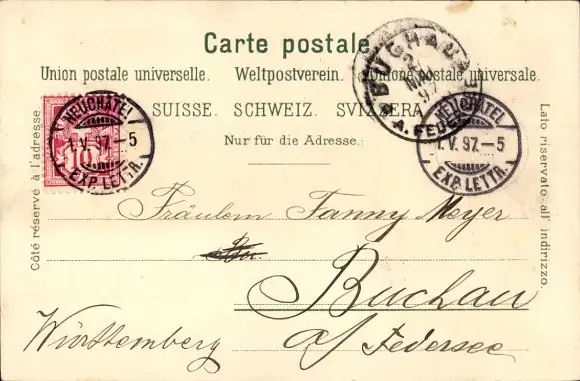 Carte postale.
Union postale universelle. Weltpostverein. Unione postale universale.
SUISSE. SCHWEIZ. SVIZZERA.
Nur für die Adresse.
Côté réservé à l'adresse.
Lato riservato all' indirizzo.
NEUCHÂTEL
1.V.97.–5
EXP. LETTR.
BUCHAU
2
MAI
97
A. FEDERSEE
NEUCHÂTEL
1.V.97.–5
EXP. LETTR.
10
Fräulein Fanny Meyer
Buchau
Württemberg a/ Federsee